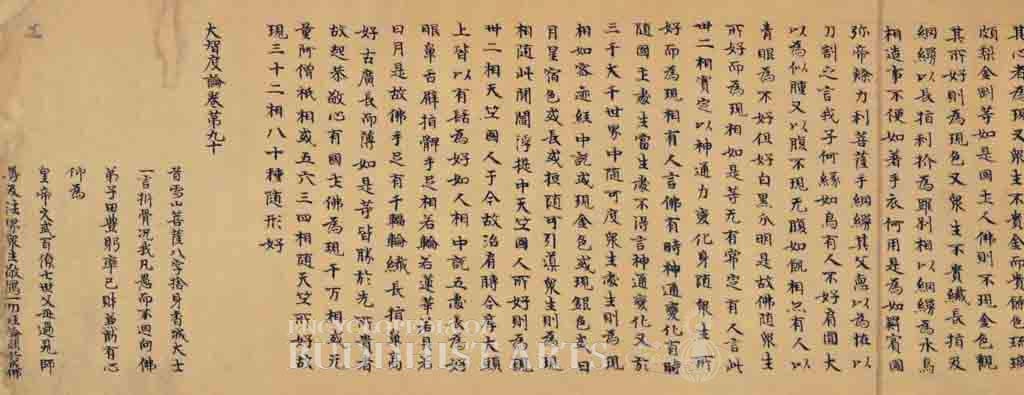 其心者為現又衆生不貴金而貴餘色琉璃
頗梨金剛等如是國土人佛則不現金色觀
其所好則為現色又衆生不貴纖長指及
網縵以長指利扴為羅剎相以網縵為水鳥
相造事不便如著手衣何用是為如罽賓國
弥帝隸力利菩薩手網縵其父惡以為怪以
刀割之言我子何緣如鳥有人不好肩圓大
以為似腫又以腹不現无腹如餓相亦有人以
青眼為不好但好白黑分明是故佛隨衆生
所好而為現相如是等无有常定有人言此
卅二相實定以神通力變化身隨衆生所
好而為現相有人言佛有時神通變化有時
隨國土處生當生處不得言神通變化又於
三千大千世界中隨可度衆生處生則為現
相如密迹經中說或現金色或現銀色或日
月星宿色或長或短隨可引導衆生則為現
相隨此間閻浮提中天竺國人所好則為現
卅二相天竺國人于今故治肩髆令厚大頭
上皆以有結為好如人相中說五處長為好
眼鼻舌臂指髀手足相若輪若蓮華若貝若
日月是故佛手足有千輻輪纖長指鼻高
好舌廣長而薄如是等皆勝於先所貴者
故起恭敬心有國土佛為現千万相或无
量阿僧祇相或五六三四相隨天竺所好故
現三十二相八十種隨形好
大智度論卷第九十
昔雪山菩薩八字捨身香城大士
一言析骨況我凡愚而不迴向佛
弟子田豊躬率己財並勸有心
仰為
皇帝文武百僚七世父母過見師
尊及法界衆生敬寫一切经論願共成佛
ENCYCLOPEDIA OF
BUDDHIST ARTS